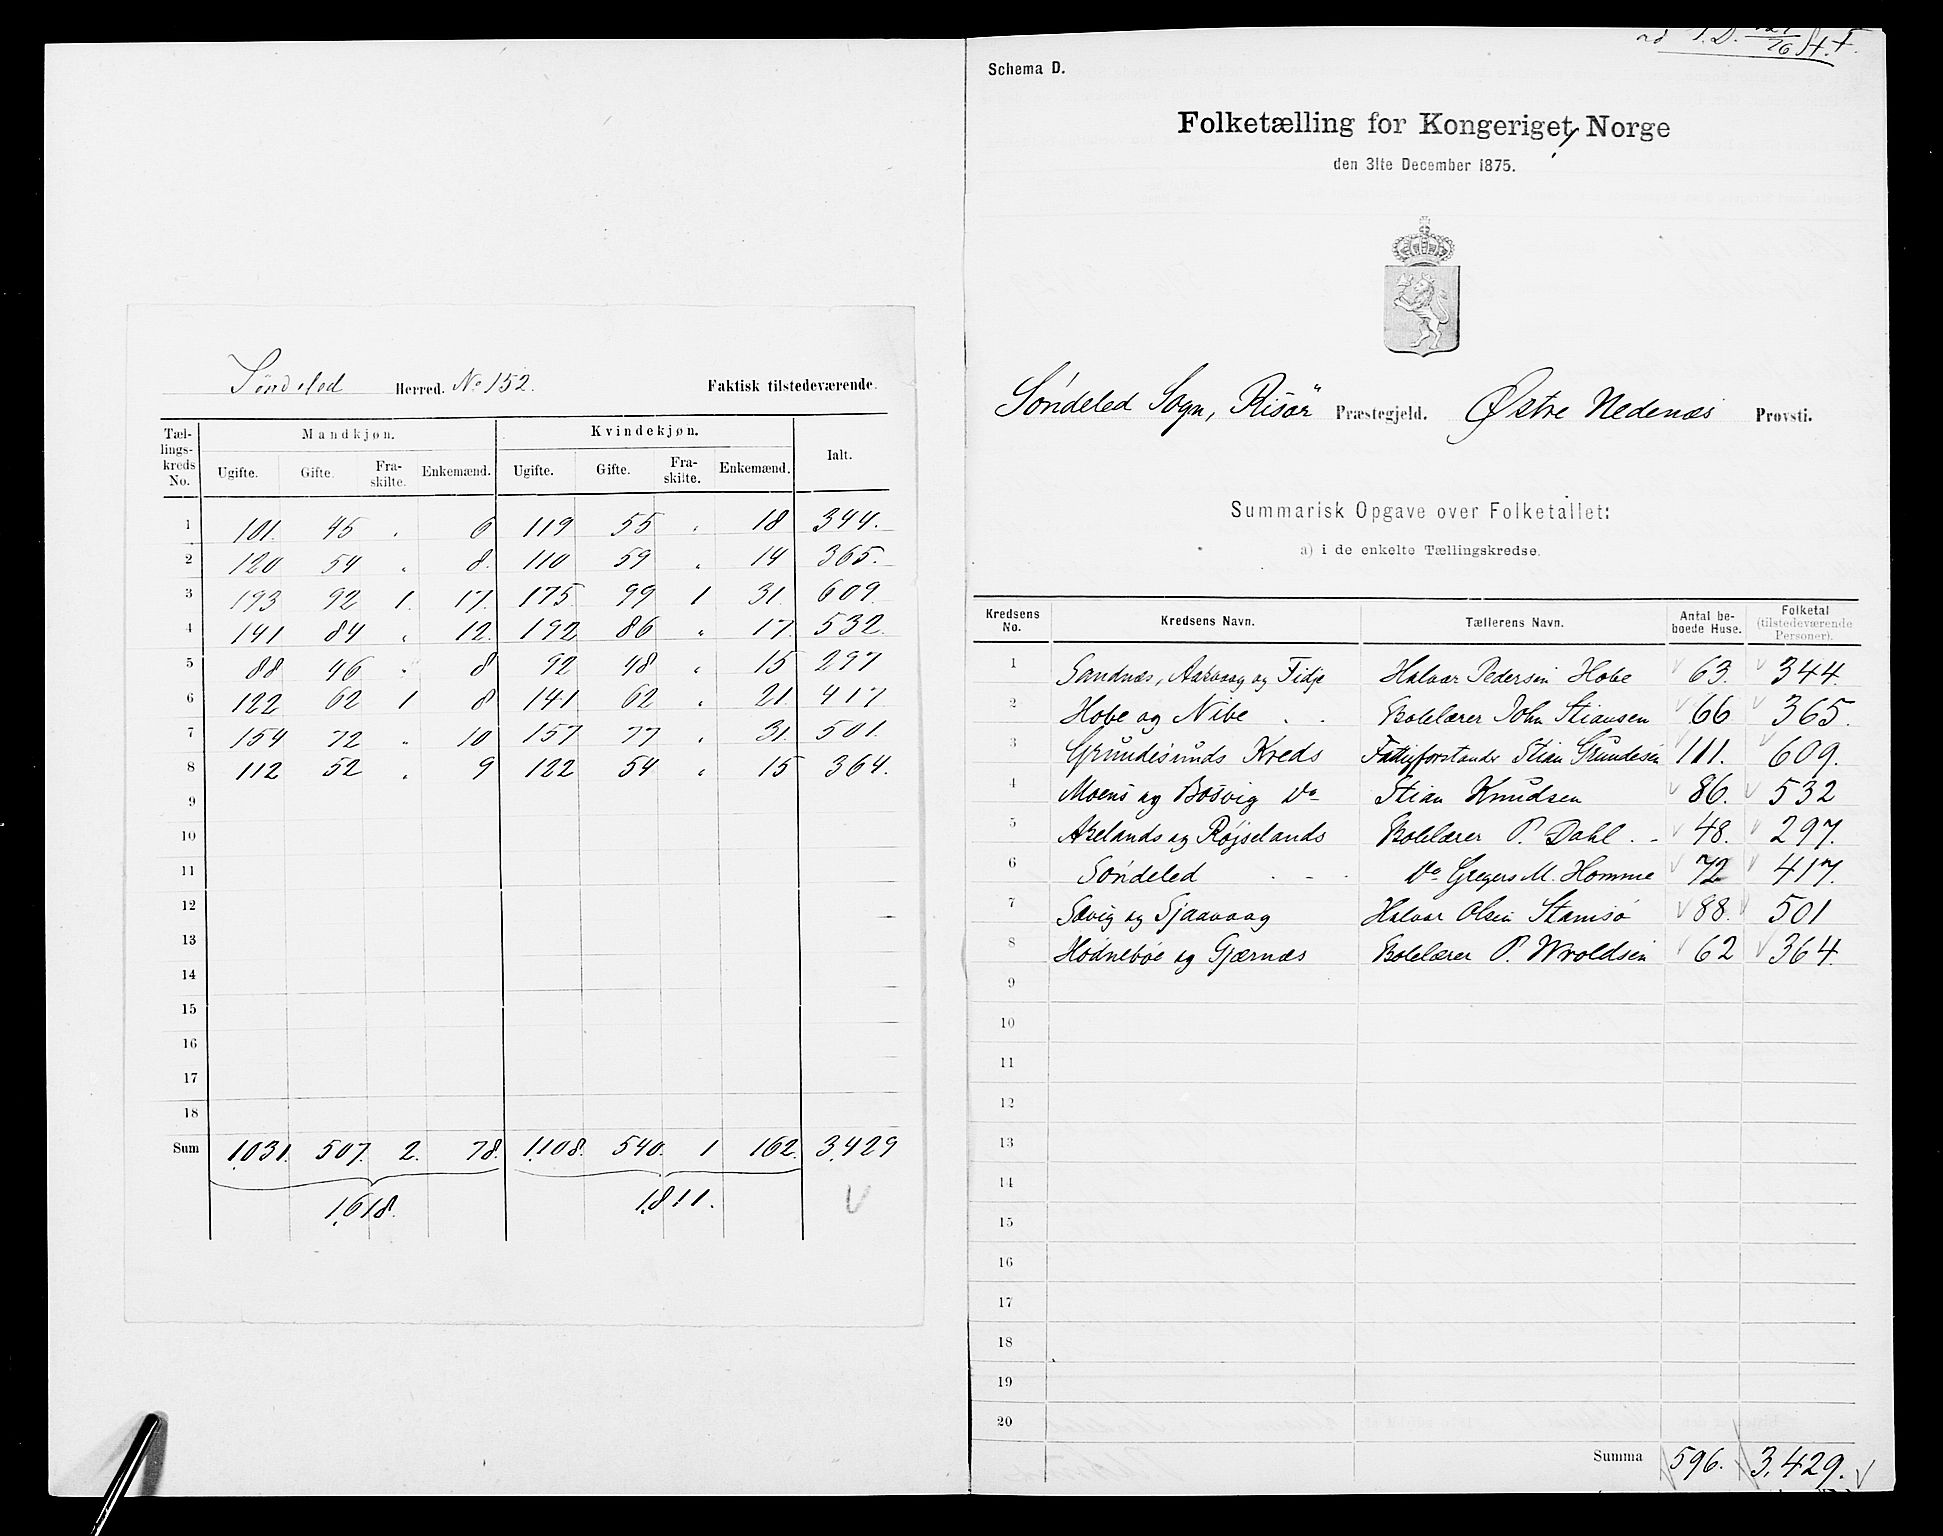 Søndeled Herred. No 152. Faktisk tilstedeværende.
Tællingskreds No. Mandkjøn. Kvindekjøn. Ialt.
Ugifte. Gifte. Fraskilte. Enkemænd. Ugifte. Gifte. Fraskilte. Enkemænd.
1 101. 45 „ 6 119 55 „ 18 344.
2 120 54 „ 8. 110 59 „ 14 365.
3 193 92 1. 17. 175 99 1 31. 609.
4 141 84 „ 12. 192 86 „ 17. 532.
5 88 46 „ 8 92 48 „ 15 297
6 122 62 1 8 141 62 „ 21. 417
7 154 72 „ 10 157 77 „ 31. 501.
8 112 52 „ 9 122 54 „ 15 364.
9
10
11
12
13
14
15
16
17
18
Sum 1,031. 507. 2. 78. 1,108. 540. 1 162. 3,429
1,618. 1,811.
Schema D.
Folketælling for Kongeriget Norge
den 31te December 1875.
Søndeled Sogn, Risør Præstegjeld. Østre Nedenæs Provsti.
Summarisk Opgave over Folketallet:
a) i de enkelte Tællingskredse.
Kredsens No. Kredsens Navn. Tællerens Navn. Antal beboede Huse. Folketal (tilstedeværende Personer).
1 Sandnæs, Aakvaag og Fidje Halvor Pedersen Hobe 63. 344.
2 Hobe og Nibe . . Skolelærer John Stiansen 66 365.
3 Grundesunds Kreds Fattigforstander Stian Grundesen 111. 609.
4 Moens og Bosvig Do Stian Knudsen 86. 532
5 Akelands og Røjselands Skolelærer P. Dahl . - 48. 297.
6 Søndeled . - . Do Gregers M. Homme 72 417.
7 Sævig og Sjaavaag Halvor Olsen Stamsø 88. 501
8 Hødnebøe og Gjærnæs Skolelærer P. Wroldsen 62 364.
9
10
11
12
13
14
15
16
17
18
19
20
Summa 596. 3,429.